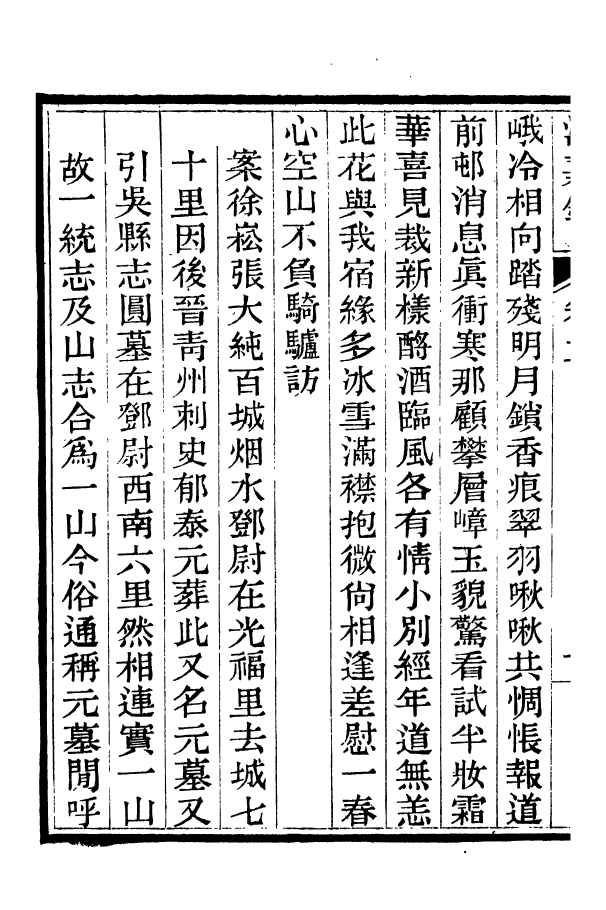 峨冷相向踏殘明月鎖香痕翠羽啾啾共惆悵報道
前邨消息眞衝寒那顧攀層嶂玉貌驚看試半妝霜
華喜見裁新樣酹酒臨風各有情小別經年道無恙
此花與我宿緣多冰雪滿襟抱微尙相逢差慰一春
心空山不負騎驢訪
案徐崧張大純百城烟水鄧尉在光福里去城七
十里因後晉靑州刺史郁泰元葬此又名元墓又
引吳縣志圓墓在鄧尉西南六里然相連實一山
故一統志及山志合爲一山今俗通稱元墓閒呼